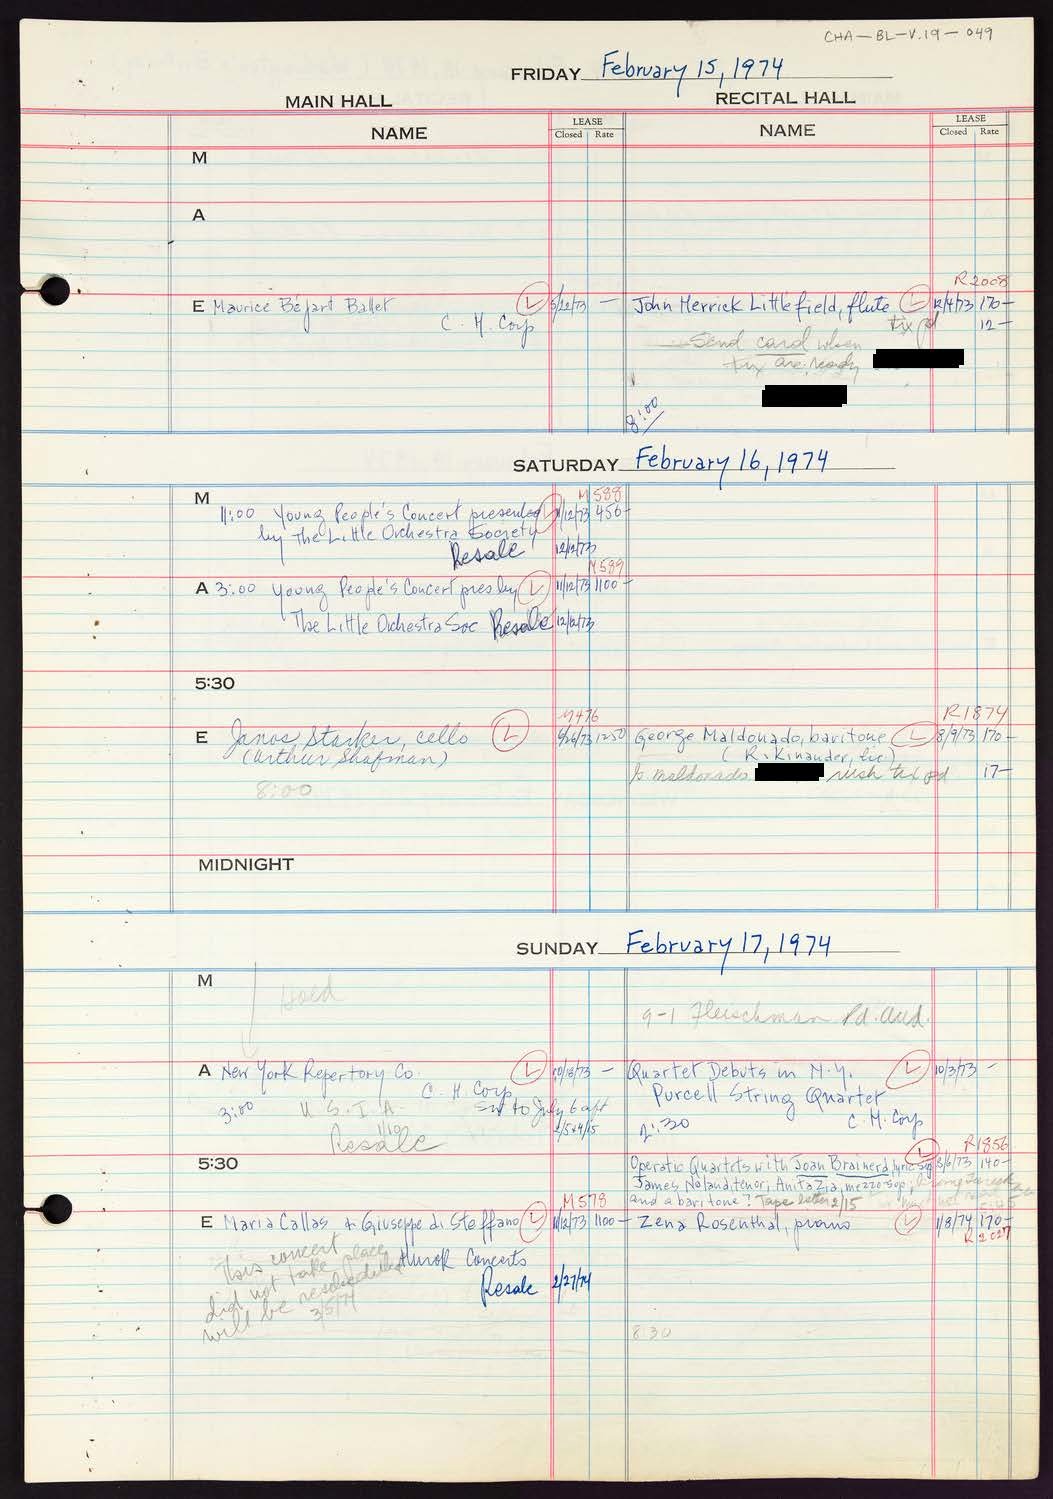 CHA-BL-V.19-049
FRIDAY February 15, 1974
MAIN HALL RECITAL HALL
NAME LEASE Closed Rate NAME LEASE Closed Rate
M
A
R2008
E Maurice Béjart Ballet L 5/22/73 — John Herrick Littlefield, flute L 12/4/73 170—
C. H. Corp tix pd 12—
Send card when
tix are ready
8:00
SATURDAY February 16, 1974
M M588
11:00 Young People's Concert presented 11/12/73 450—
by The Little Orchestra Society
Resale 12/12/73
M589
A 3:00 Young People's Concert pres by L 11/12/73 1100—
The Little Orchestra Soc Resale 12/12/73
5:30
M476 R1874
E Janos Starker, cello L 9/26/73 1250 George Maldonado, baritone L 8/9/73 170—
(Arthur Shafman) (R. Kinauder, Lic.)
8:00 maldonado tix pd 17—
MIDNIGHT
SUNDAY February 17, 1974
M
Hold
9-1 Fleischman Pd. Aud.
A New York Repertory Co. L 10/18/73 — Quartet Debuts in N.Y. L 10/3/73 —
C. H. Corp Purcell String Quartet
3:00 U.S.I.A. to July 6 aft C. H. Corp
1/10 2:30
Resale
R1856
5:30 Operatic Quartets with Joan Brainerd, lyric sop L 8/6/73 140—
James Noland, tenor, Anita Zia, mezzo sop,
M578 and a baritone? Tape letter 2/15
E Maria Callas & Giuseppe di Steffano L 11/12/73 1100— Zena Rosenthal, piano L 1/8/74 170—
R2027
Hurok Concerts
This concert
did not take place
will be rescheduled
3/5/74
Resale 2/27/74
8:30